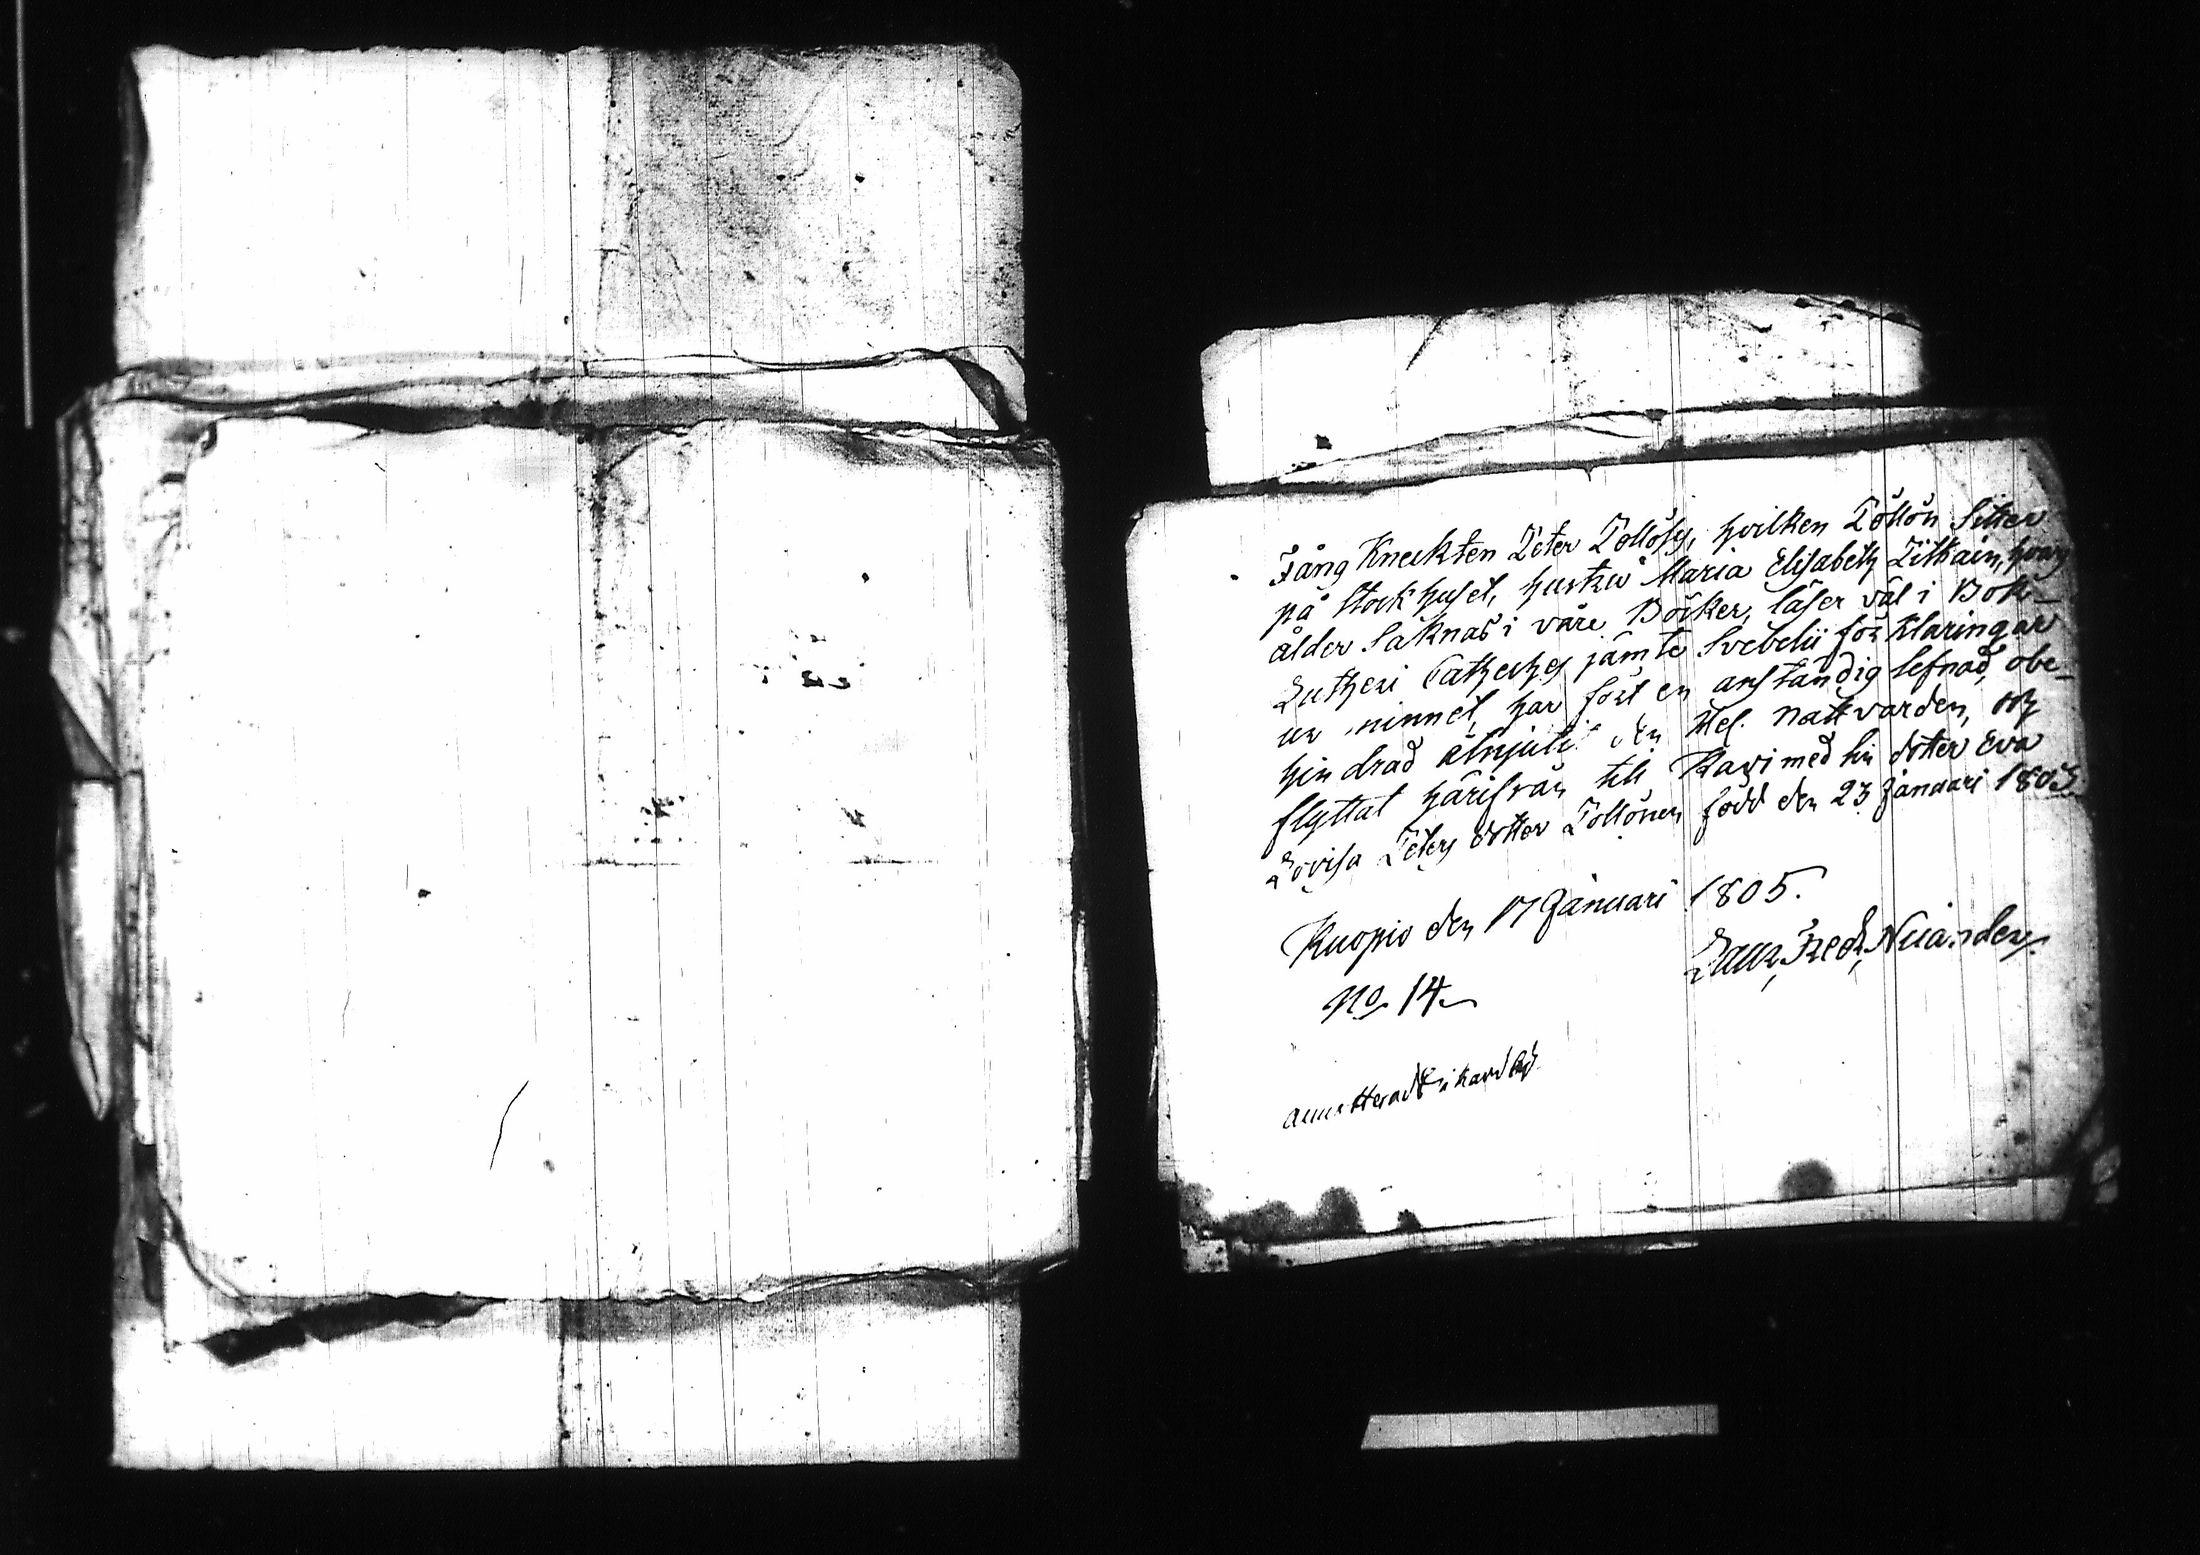 Fång Knecktens Peter Tollös, hvilken Tollön sitter
på Stockhuset, hustru Maria Elisabeth Pitkäin, hvars
ålder saknas i våre Böcker, läser väl i Bok
Lutheri Catheches jämte Svebelii förklaringar
ur minnet, har fört en anständig lefnad, obe-
hindrad åtnjutit den Hel. Nattvarden, och
flyttat härifrån till Kavi med sin dotter Eva
Lovisa Peters dotter Tollönen född den 23 Januari 1803.
Kuopio den 17 Januari 1805.
No. 14